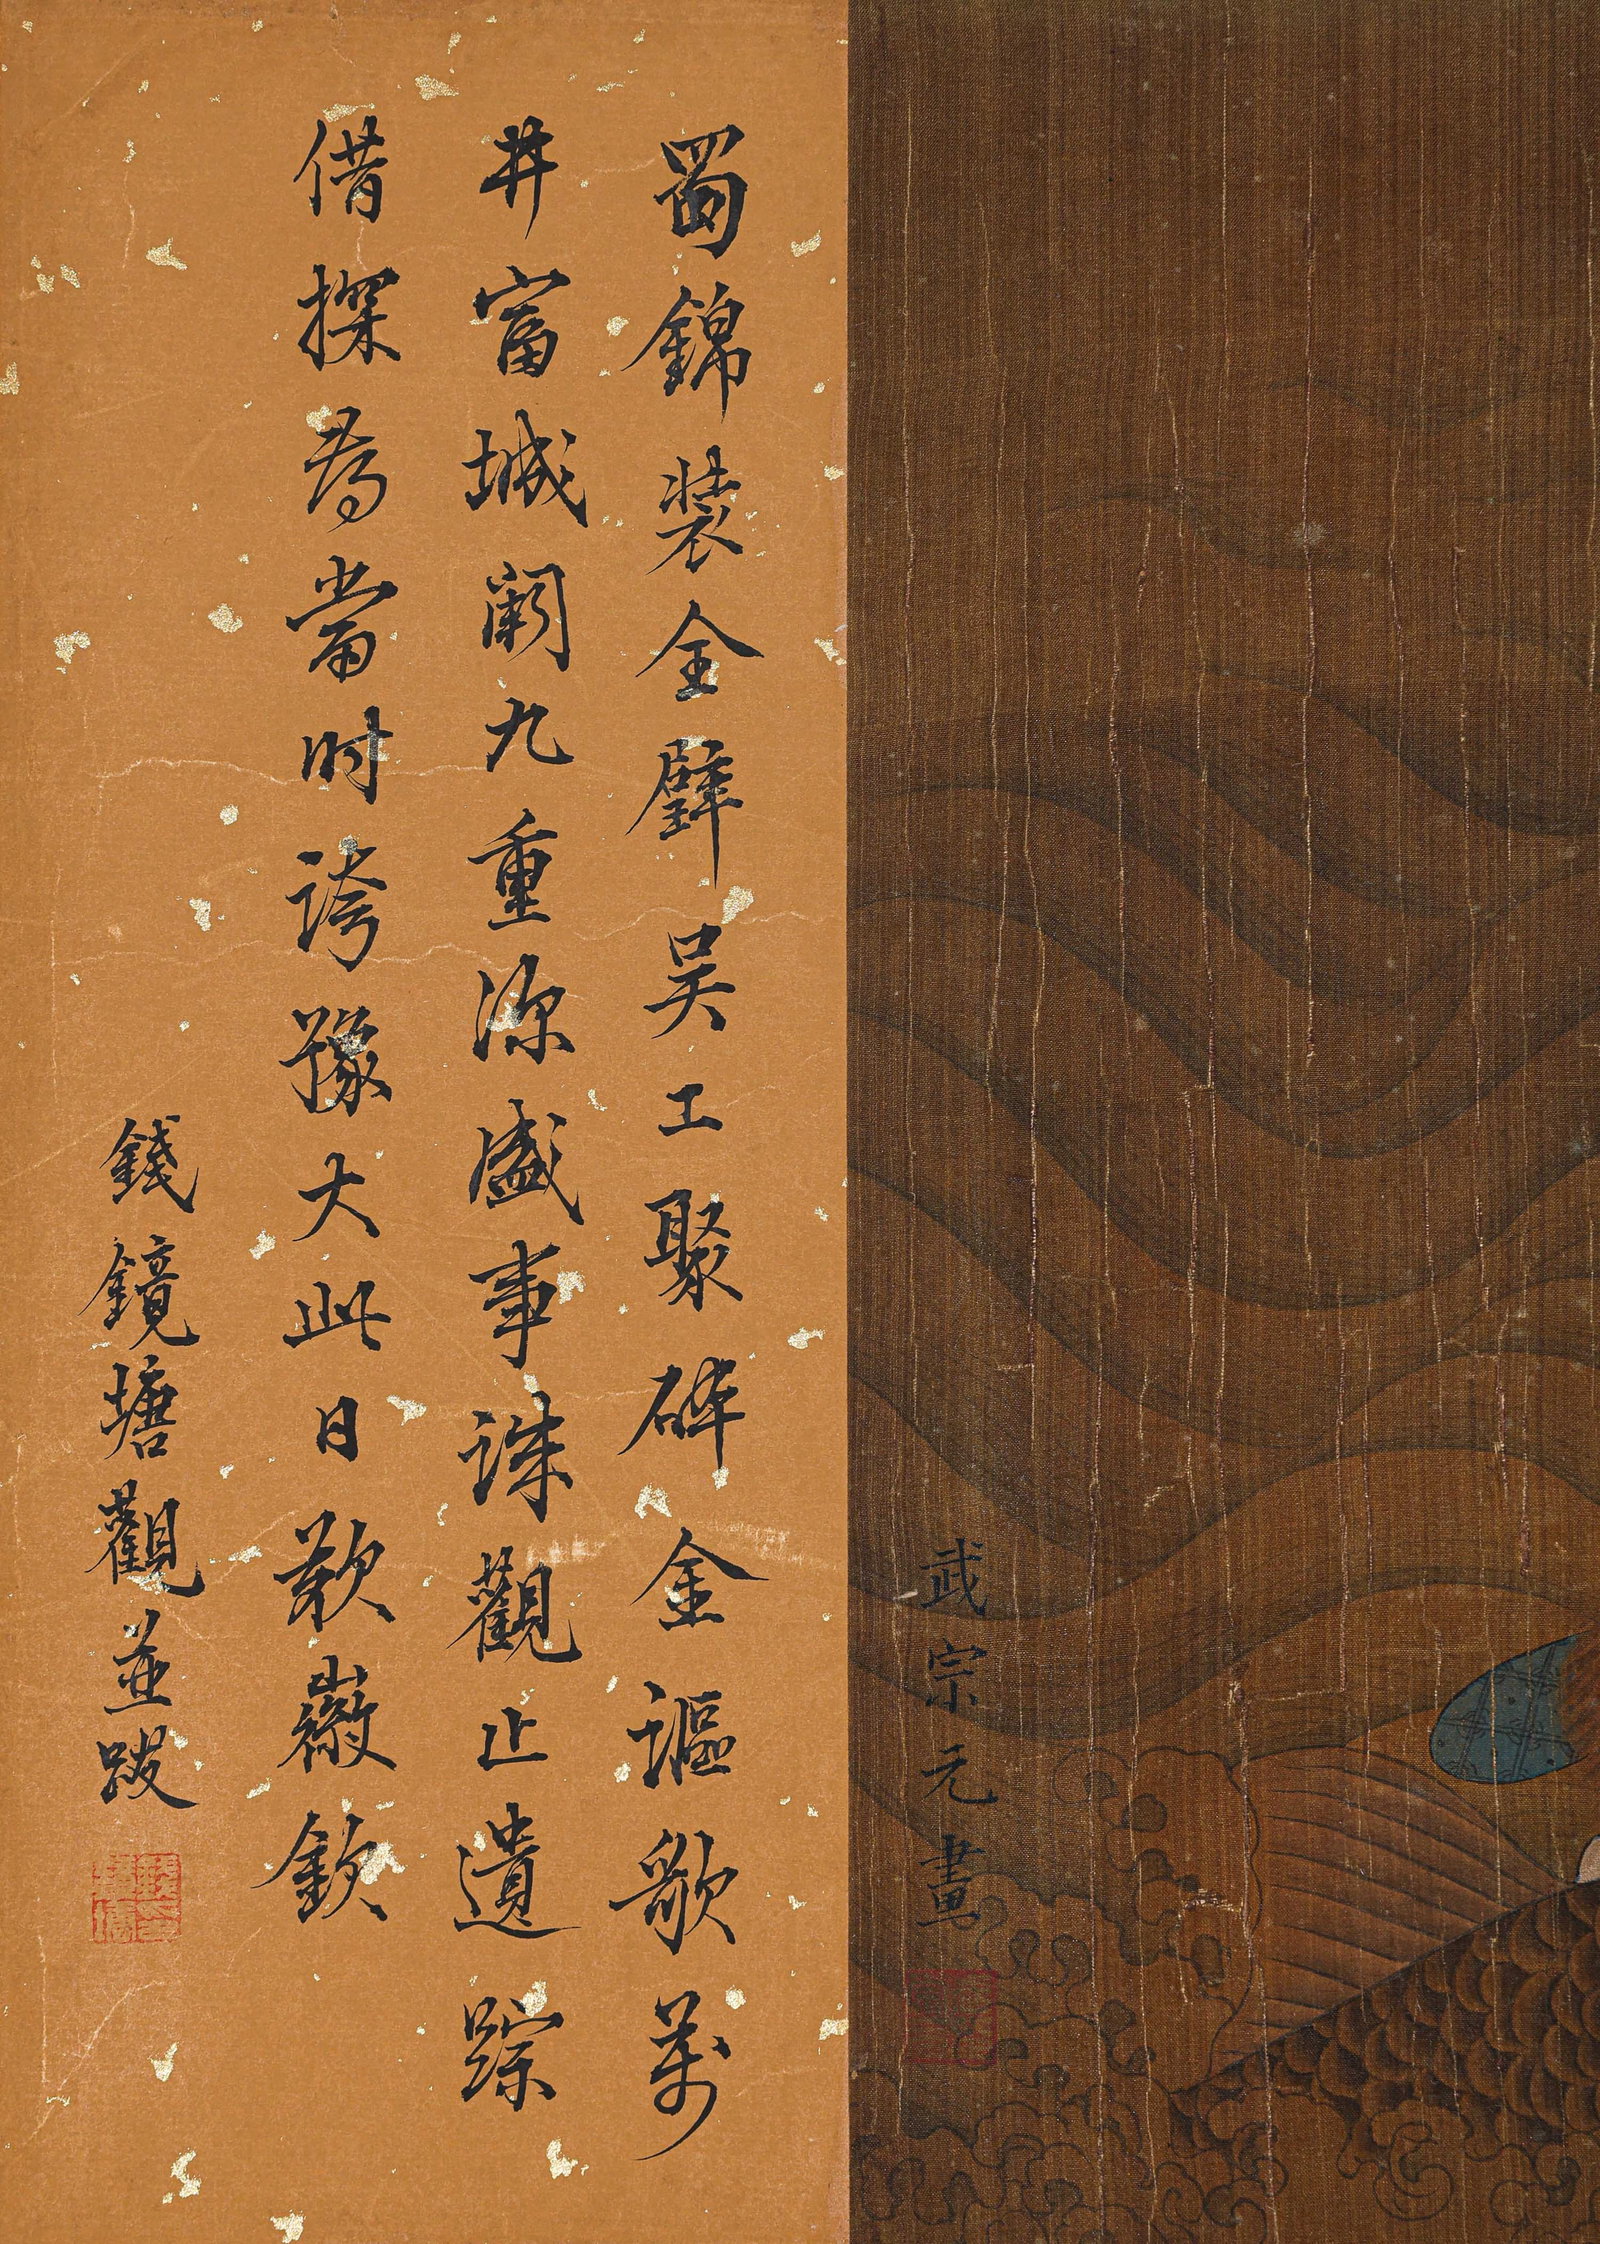 武宗元畫
蜀錦裝全璧吳工聚碎金謳歌萬
井富城闕九重深盛事誅觀止遺踪
借探尋當時誇豫大此日歎嶔欽
錢鏡塘觀並跋